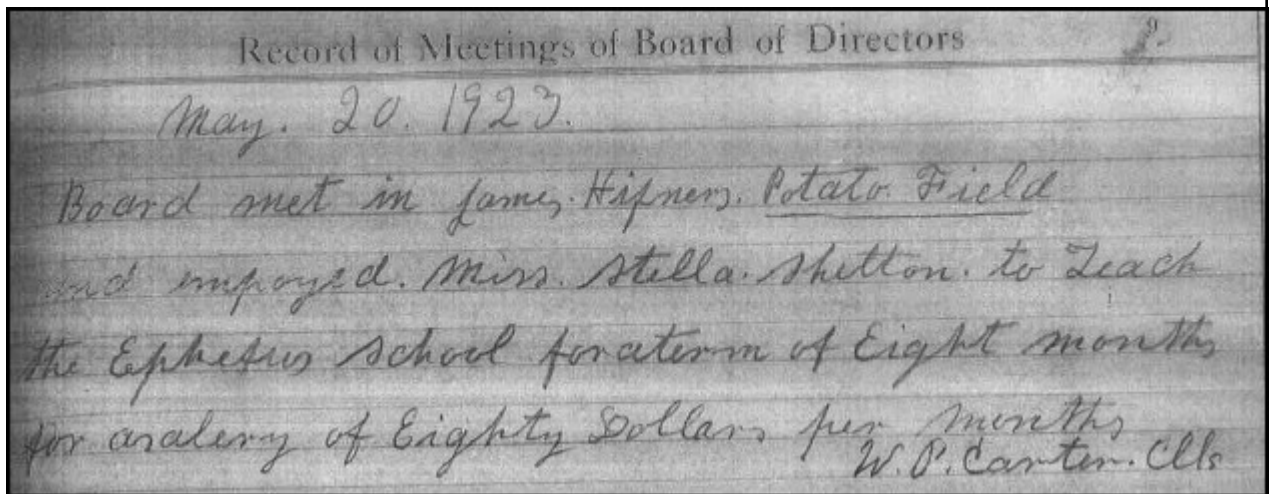 Record of Meetings of Board of Directors
May. 20. 1923.
Board met in James. Hipners. Potato. Field
and impoyed. Miss. Stella. Shelton. to Teach
the Ephesus School for a term of Eight months
for a salery of Eighty Dollars per months
W. P. Carter. Clk